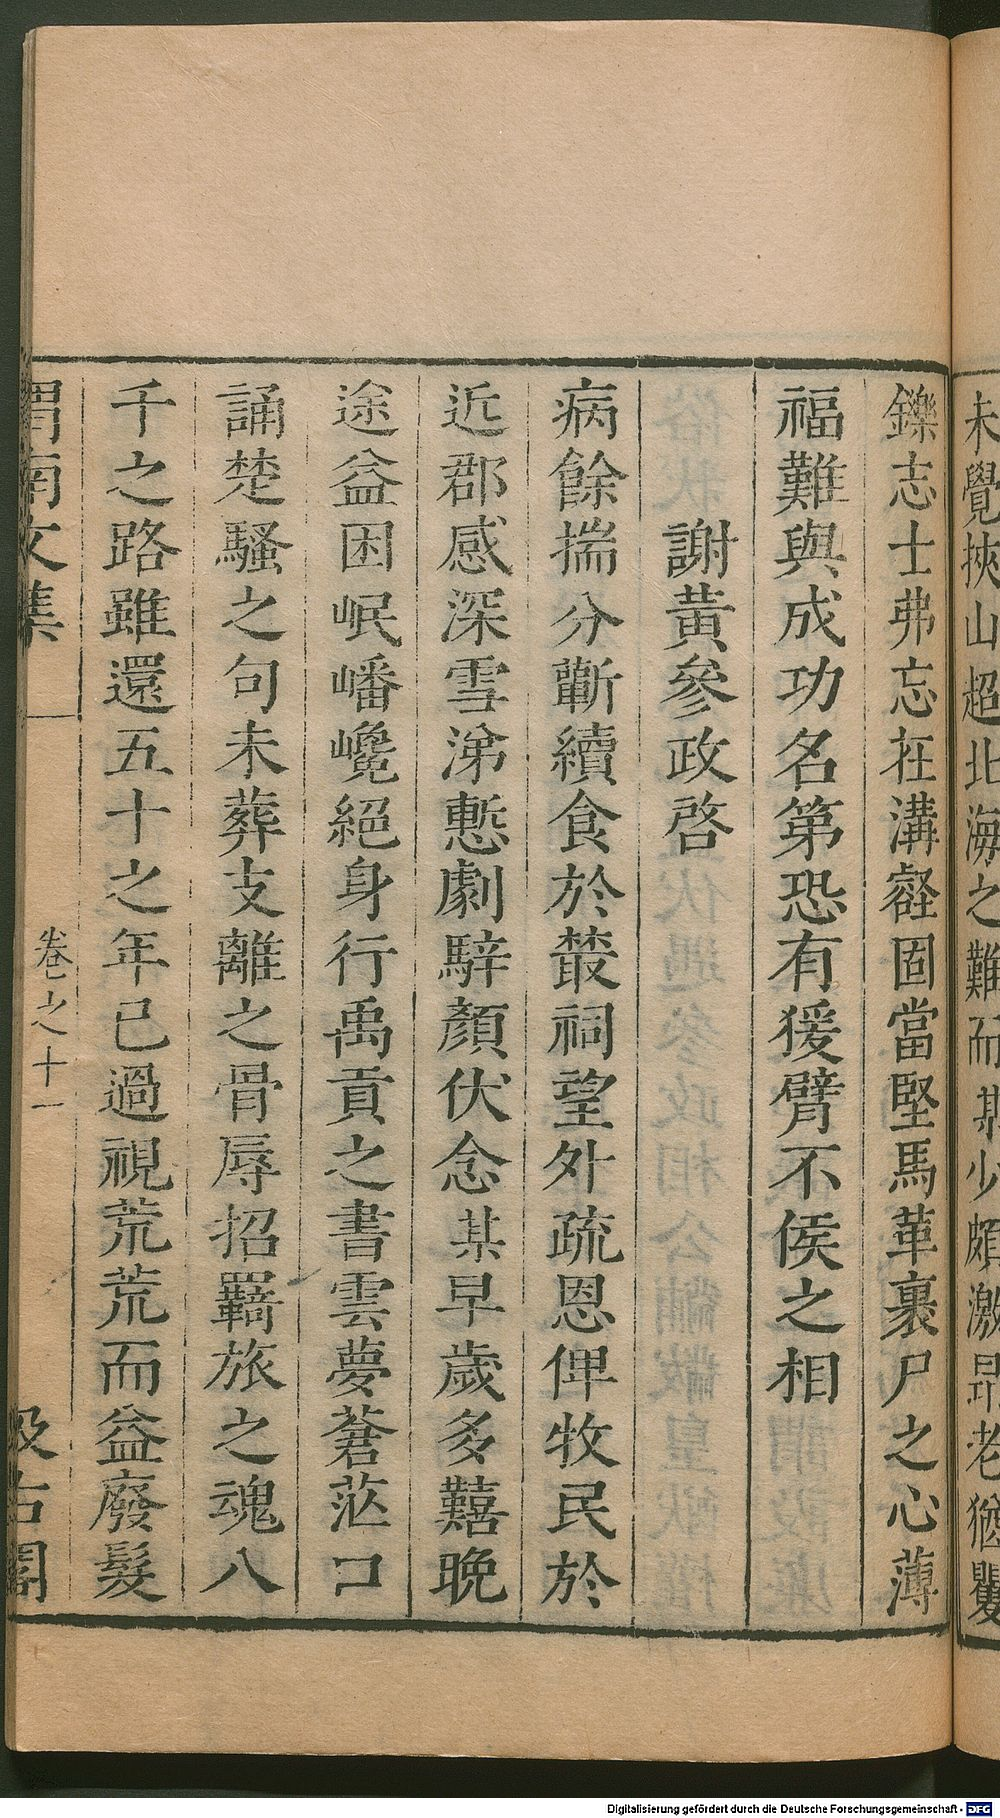 未覺挾山超北海之難而期少頗激昂老猶矍
鑠志士弗忘在溝壑固當堅馬革裹尸之心薄
福難與成功名第恐有猨臂不侯之相
謝黃參政啓
病餘揣分斷續食於叢祠望外疏恩俾牧民於
近郡感深雪涕慙劇騂顏伏念某早歲多囏晚
途益困岷嶓巉絕身行禹貢之書雲夢蒼茫口
誦楚騷之句未葬支離之骨辱招羇旅之魂八
千之路雖還五十之年已過視荒荒而益廢髮
渭南文集
卷之十一
汲古閣
Digitalisierung gefördert durch die Deutsche Forschungsgemeinschaft - DFG